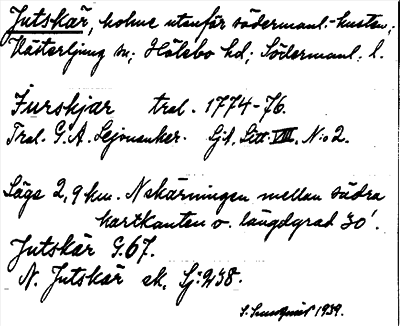 Jutskär, holme utanför södermanl.-kusten;
Västerljung sn; Hölebo hd; Södermanl. l.
Jurskjar tral. 1774-76.
Tral. G.A. Lejonanker. Sjk. Litt. VIII. N:o 2.
Läge 2,9 km. N skärningen mellan södra
kartkanten o. längdgrad 30'.
Jutskär G.67.
N. Jutskär ek. Sj: 238.
S. 1939.